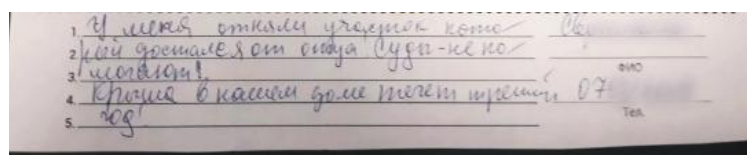 1. У меня отняли участок кото
2. рый достался от отца Суды-не по
3. могают!
ФИО
4. Крыша в нашем доме течет третий 07
5. год!
Тел.